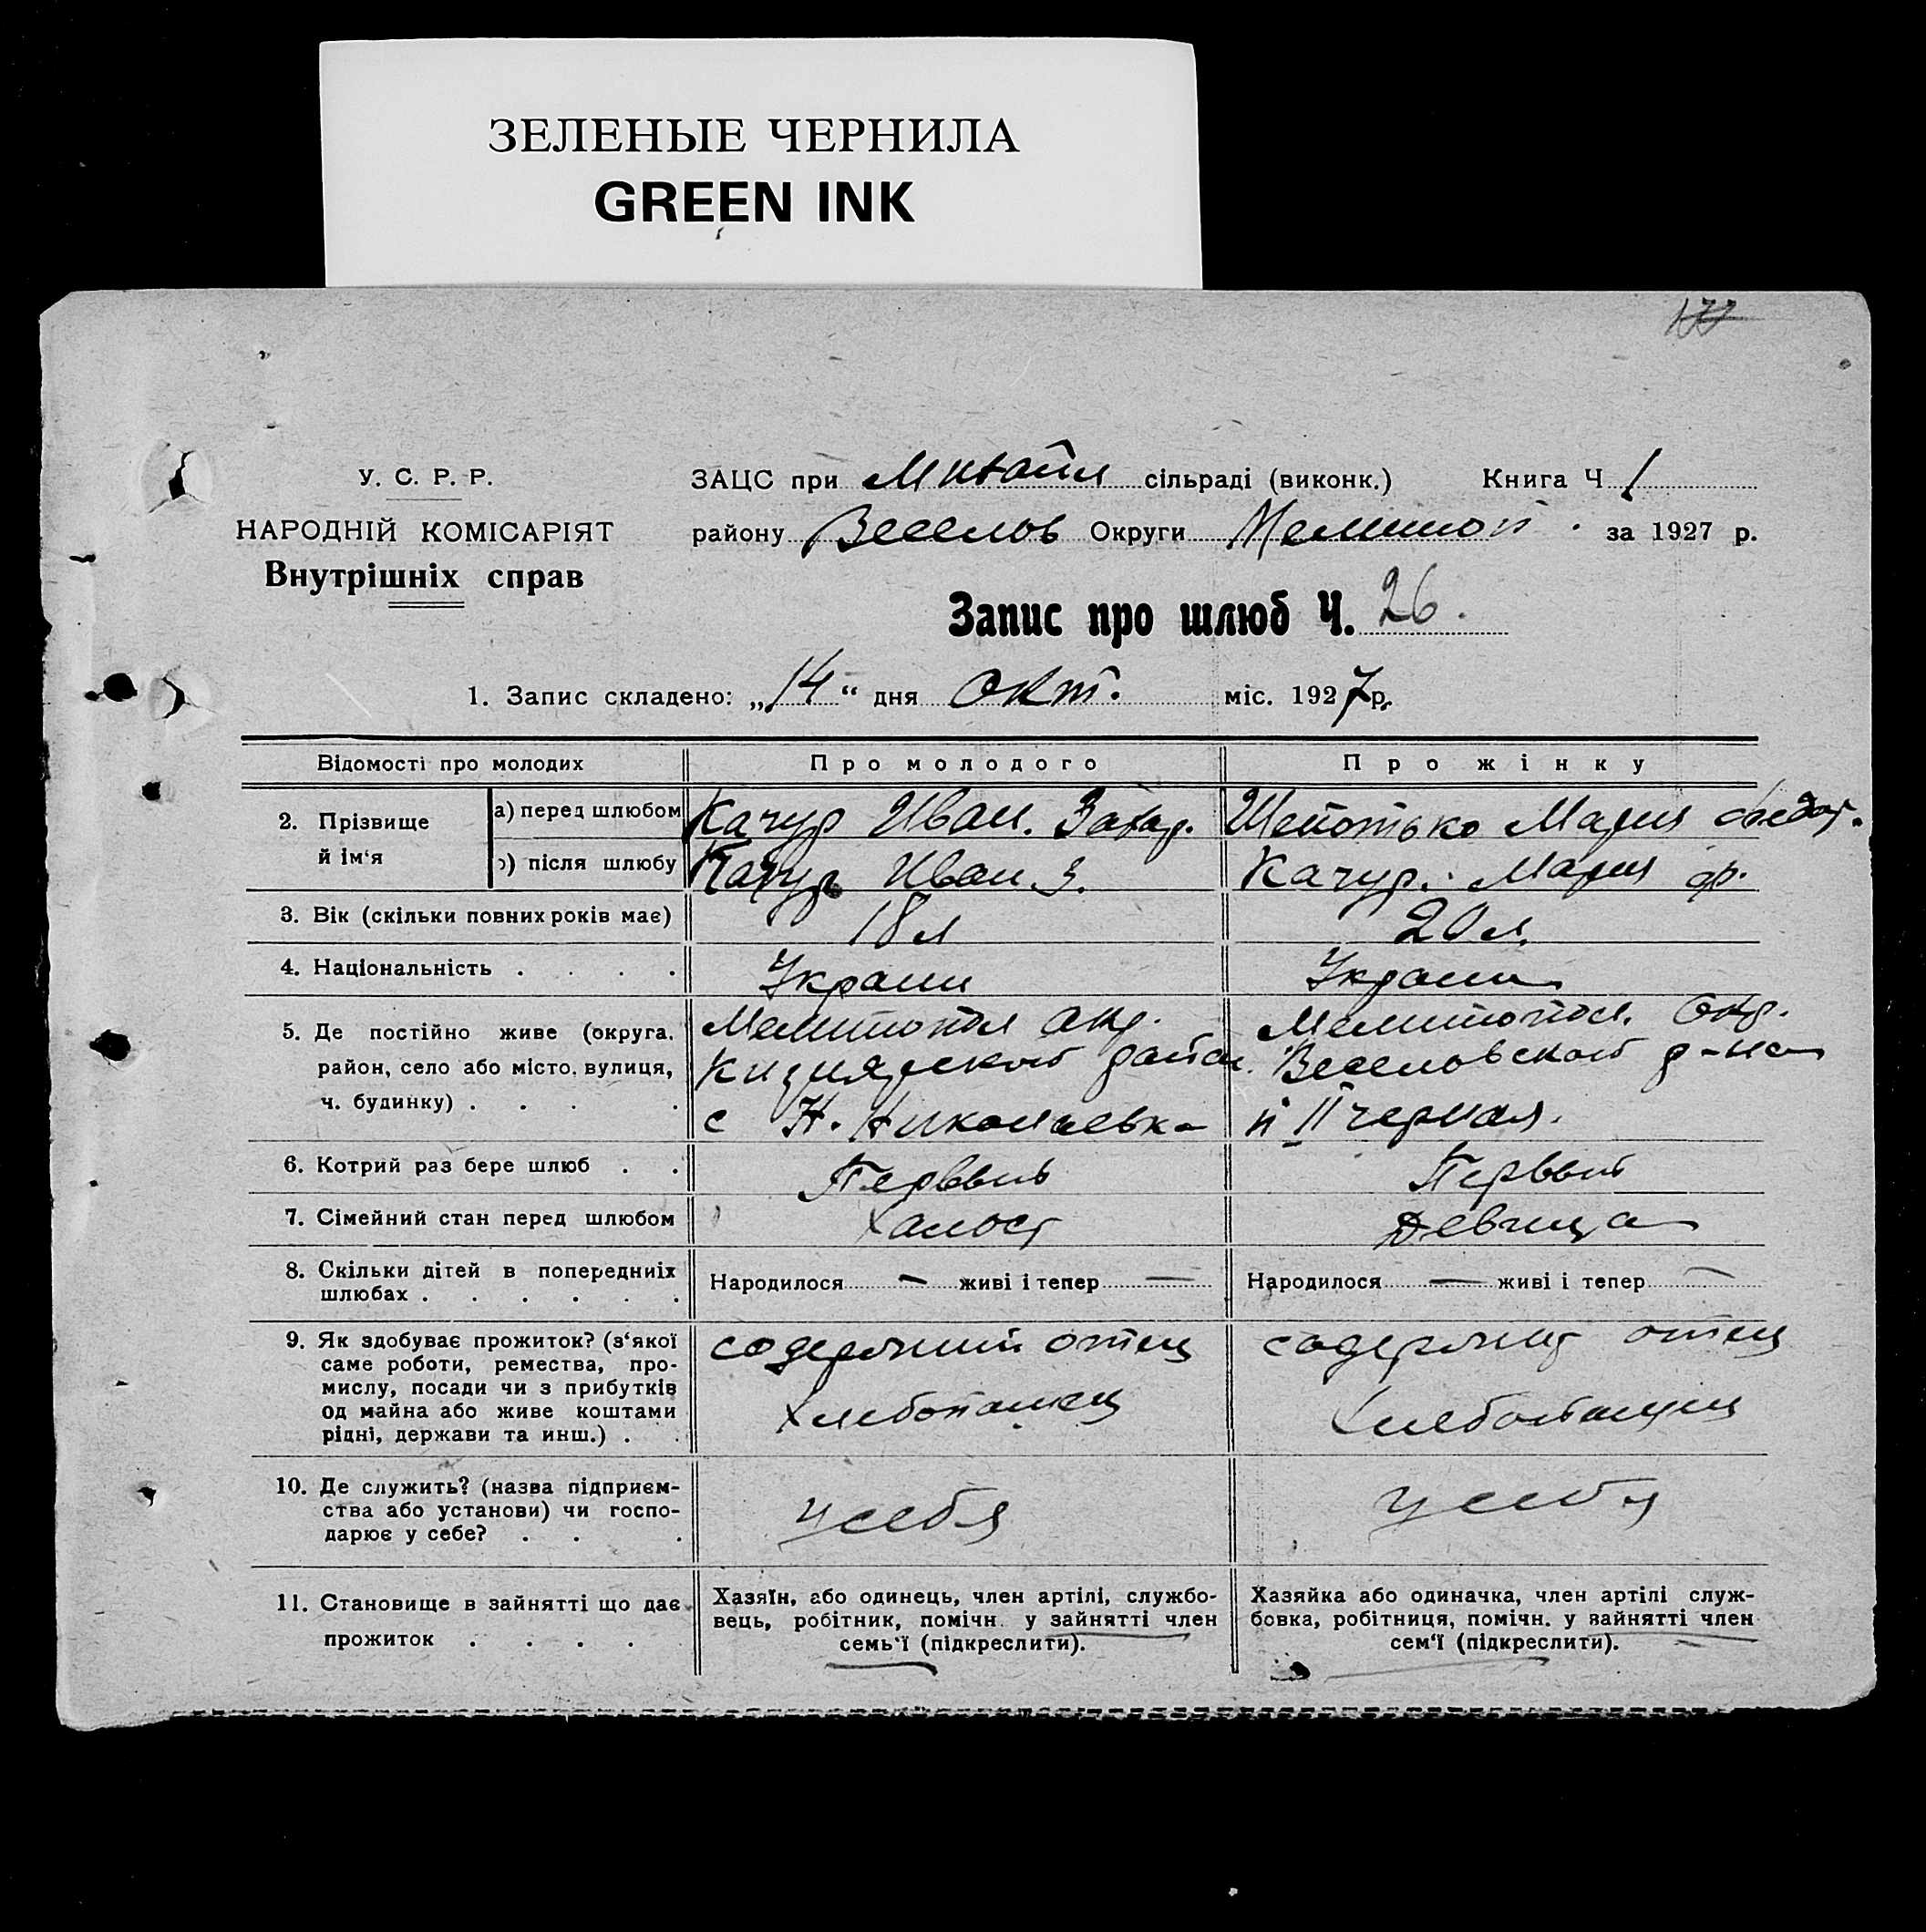 ЗЕЛЕНЫЕ ЧЕРНИЛА
GREEN INK
У. С. Р. Р.
НАРОДНІЙ КОМІСАРІЯТ
Внутрішніх справ
ЗАЦС при Михайл сільраді (виконк.) Книга Ч 1
району Веселов Округи Мелитоп. за 1927 р.
Запис про шлюб Ч. 26.
1. Запис складено: „14“ дня Окт. міс. 1927 р.
Відомості про молодих Про молодого Про жінку
2. Прізвище й ім‘я
а) перед шлюбом Качур Иван. Захар. Шепотько Мария Федот.
б) після шлюбу Качур Иван З. Качур. Мария Ф.
3. Вік (скільки повних років має) 18 л 20 л.
4. Національність . . . . Украин Украин
5. Де постійно живе (округа, Мелитопол Окр. Мелитопол. Окр.
район, село або місто, вулиця, район. Веселовской р-на
ч. будинку) . . . . с Н. Николаевка Черная.
6. Котрий раз бере шлюб . . Первый Первый
7. Сімейний стан перед шлюбом Халост Девица
8. Скільки дітей в попередниіх Народилося — живі і тепер — Народилося — живі і тепер —
шлюбах . . . . . .
9. Як здобуває прожиток? (з‘якої содержит отец содержит отец
саме роботи, ремества, про-
мислу, посади чи з прибутків Хлебопашец Хлебопашец
од майна або живе коштами
рідні, держави та инш.) . .
10. Де служить? (назва підприєм- у себя у себя
ства або установи) чи госпо-
дарює у себе? . . .
11. Становище в зайнятті що дає Хазяїн, або одинець, член артілі, службо- Хазяйка або одиначка, член артілі служ-
вець, робітник, помічн. у зайнятті член бовка, робітниця, помічн. у зайнятті член
прожиток . . . . семь‘ї (підкреслити). сем‘ї (підкреслити).